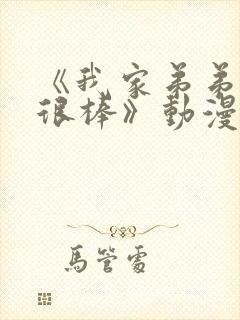 《我家弟弟
很棒》動漫
馬管雷